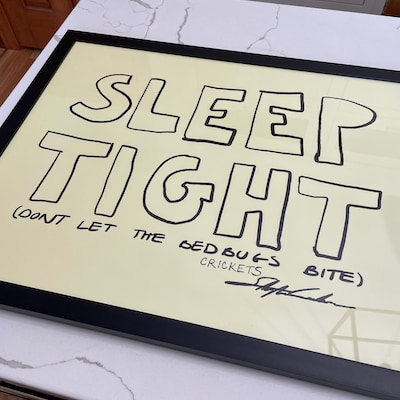 SLEEP
TIGHT
(DONT LET THE BEDBUGS BITE)
CRICKETS